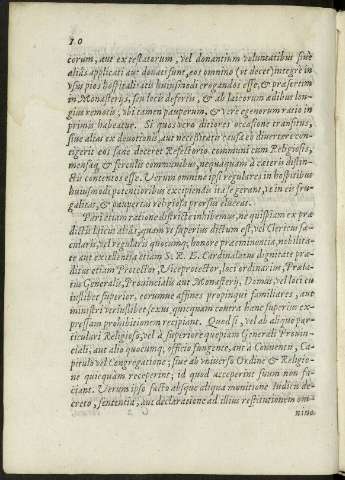 10
corum, aut ex testatorum, vel donantium voluntatibus siue
alias applicati aut donati sunt, eos omnino (ut decet) integrè in
vsus pios hospitalitatis huiusmodi erogandos esse, & praesertim
in Monasterijs, seu locis desertis, & ab laicorum ædibus lon-
gius remotis, vbi tamen pauperum, & verè egenorum ratio in
primis habeatur. Si quos verò ditiores occasione transitus,
siue alias ex deuotionis, aut necessitatis causa eò diuertere con-
tigerit eos sanè deceret Refectorio communi cum Religiosis,
mensaq, & ferculis communibus, nequaquam à cæteris distin-
ctis contentos esse. Verum omnino ipsi regulares in hospitibus
huiusmodi potentioribus excipiendis ita se gerant, vt in eis fru-
galitas, & paupertas religiosa prorsus eluceat.
Pari etiam ratione districtè inhibemus, ne quispiam ex præ-
dictis laicus aliàs, quam vt superius dictum est, vel Clericus sæ-
cularis, vel regularis quocumq, honore præeminentia, nobilita-
te aut excellentia etiam S. R. E. Cardinalatus dignitate præ-
ditus etiam Protector, Viceprotector, loci ordinarius, Præla-
tus Generalis, Prouincialis aut Monasterij, Domus, vel loci cu-
iuslibet superior, eorumue affines propinqui familiares, aut
ministri veriuslibet sexus, quicquam contra hanc superius ex-
pressam prohibitionem recipiant. Quod si, vel ab aliquo par-
ticulari Religioso, vel à superiore quopiam Generali Prouin-
ciali, aut alio quocumq, officio fungente, aut à Conuentu, Ca-
pitulo vel Congregatione, siue ab vniuerso Ordine & Religio-
ne quicquam receperint; id quod acceperint suum non fa-
ciant. Verum ipso facto absque aliqua monitione Iudicis de-
creto, sententia, aut declaratione ad illius restitutionem om-
nino